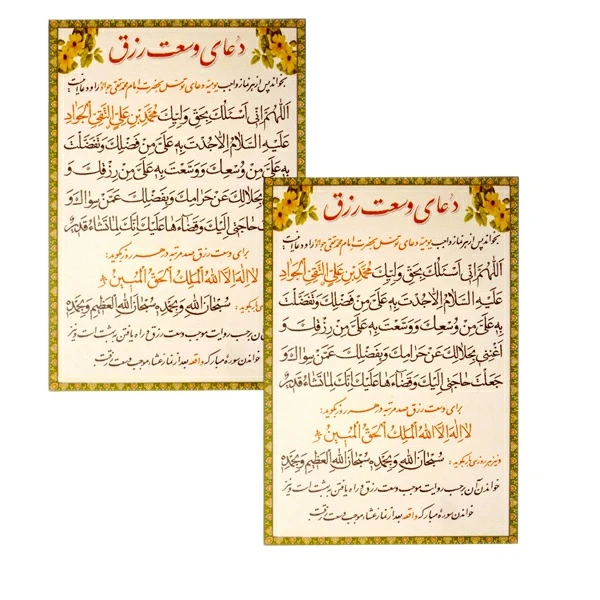 دعای وسعت رزق
بخواند پس از هر نماز واجب یومیه دعای توسل بحضرت امام محمد تقی جواد را و دعا اینست
اَللّهُمَّ اِنّی اَسْئَلُكَ بِحَقِّ وَلِیِّكَ مُحَمَّدِ بْنِ عَلِیٍّ التَّقِیِّ الْجَوادِ
عَلَیْهِ السَّلامُ اِلاّ جُدْتَ بِهِ عَلَیَّ مِنْ فَضْلِكَ وَتَفَضَّلْتَ
بِهِ عَلَیَّ مِنْ وُسْعِكَ وَوَسَّعْتَ بِهِ عَلَیَّ مِنْ رِزْقِكَ وَ
بِحَلالِكَ عَنْ حَرامِكَ وَبِفَضْلِكَ عَمَّنْ سِواكَ وَ
حاجَتی اِلَیْكَ وَقَضاءَها عَلَیْكَ اِنَّكَ لِما تَشاءُ قَدیرٌ
برای وسعت رزق صد مرتبه در هر روز بگوید:
لا اِلهَ اِلاَّ اللهُ الْمَلِكُ الْحَقُّ الْمُبینُ
بگوید: سُبْحانَ اللهِ وَبِحَمْدِهِ سُبْحانَ اللهِ الْعَظیمِ وَبِحَمْدِهِ
آن برحسب روایت موجب وسعت رزق و راه یافتن به بهشت است و نیز
خواندن سوره مبارکه واقعه بعد از نماز عشاء موجب وسعت رزقست
دعای وسعت رزق
بخواند پس از هر نماز واجب یومیه دعای توسل بحضرت امام محمد تقی جواد را و دعا اینست
اَللّهُمَّ اِنّی اَسْئَلُكَ بِحَقِّ وَلِیِّكَ مُحَمَّدِ بْنِ عَلِیٍّ التَّقِیِّ الْجَوادِ
عَلَیْهِ السَّلامُ اِلاّ جُدْتَ بِهِ عَلَیَّ مِنْ فَضْلِكَ وَتَفَضَّلْتَ
بِهِ عَلَیَّ مِنْ وُسْعِكَ وَوَسَّعْتَ بِهِ عَلَیَّ مِنْ رِزْقِكَ وَ
اَغْنِنی بِحَلالِكَ عَنْ حَرامِكَ وَبِفَضْلِكَ عَمَّنْ سِواكَ وَ
جَعَلْتَ حاجَتی اِلَیْكَ وَقَضاءَها عَلَیْكَ اِنَّكَ لِما تَشاءُ قَدیرٌ
برای وسعت رزق صد مرتبه در هر روز بگوید:
لا اِلهَ اِلاَّ اللهُ الْمَلِكُ الْحَقُّ الْمُبینُ
و نیز هر روزی بگوید: سُبْحانَ اللهِ وَبِحَمْدِهِ سُبْحانَ اللهِ الْعَظیمِ وَبِحَمْدِهِ
خواندن آن برحسب روایت موجب وسعت رزق و راه یافتن به بهشت است و نیز
خواندن سوره مبارکه واقعه بعد از نماز عشاء موجب وسعت رزقست